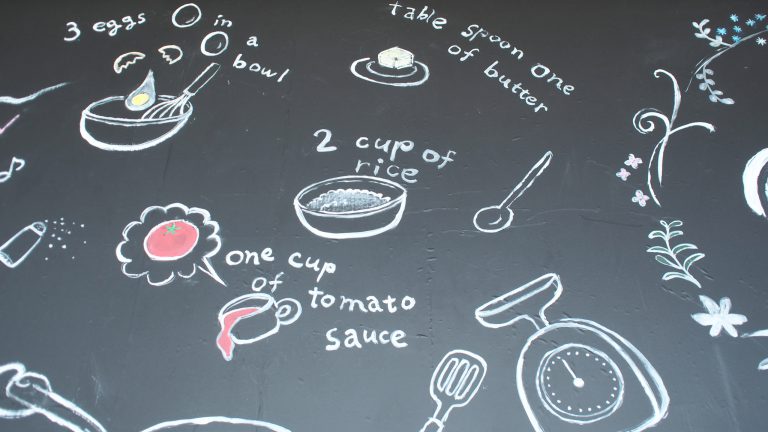 3 eggs in
a
bowl
table spoon one
of butter
2 cup of
rice
one cup
of tomato
sauce